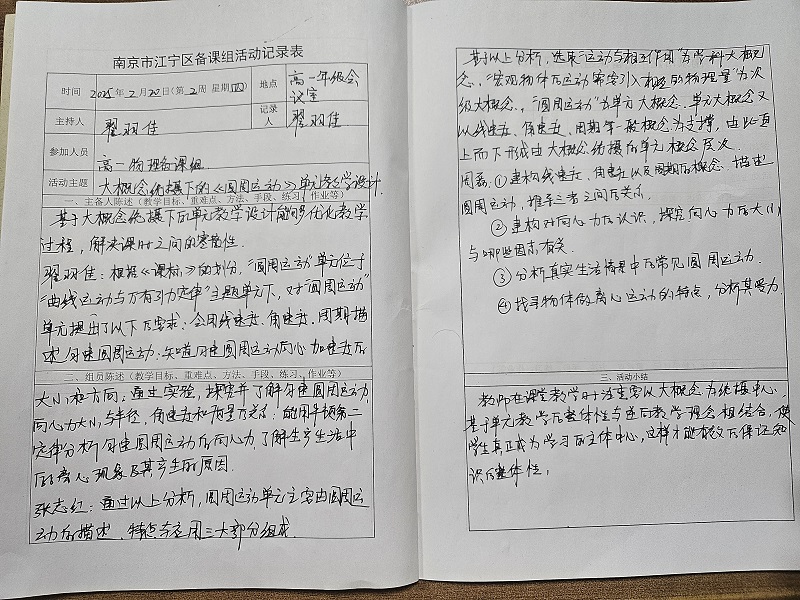 南京市江宁区备课组活动记录表
时间 2025年2月20日(第2周 星期四) 地点 高一年级会议室
主持人 翟羽佳 记录人 翟羽佳
参加人员 高一物理备课组
活动主题 大概念统摄下的《圆周运动》单元教学设计
一、主备人陈述(教学目标、重难点、方法、手段、练习、作业等)
基于大概念统摄下的单元教学设计能够优化教学
过程,解决课时之间的零散性.
翟羽佳:根据《课标》的划分,"圆周运动"单元位于
"曲线运动与万有引力定律"主题单元下,对"圆周运动"
单元提出了以下的要求:会用线速度、角速度、周期描
述匀速圆周运动.知道匀速圆周运动向心加速度的
二、组员陈述(教学目标、重难点、方法、手段、练习、作业等)
大小和方向;通过实验,探究并了解匀速圆周运动
向心力大小与半径、角速度和质量的关系;能用牛顿第二
定律分析匀速圆周运动的向心力,了解生产生活中
的离心现象及其产生的原因.
张志红:通过以上分析,圆周运动单元主要由圆周运
动的描述、特点与应用三大部分组成.
基于以上分析,选取"运动与相互作用"为学科大概
念,"宏观物体的运动需要引入相应的物理量"为次
级大概念,"圆周运动"为单元大概念.单元大概念又
以线速度、角速度、周期等一般概念为支撑,由此自
上而下形成由大概念统摄的单元概念层次.
周磊:①建构线速度、角速度以及周期的概念,描述
圆周运动,推导三者之间的关系.
②建构对向心力的认识,探究向心力的大小
与哪些因素有关.
③分析真实生活情景中的常见圆周运动.
④找寻物体做离心运动的特点,分析其受力.
三、活动小结
教师在课堂教学时注重要以大概念为统摄中心,
基于单元教学的整体性与逆向教学理念相结合,使
学生真正成为学习的主体中心,这样才能有效的保证知
识的整体性;